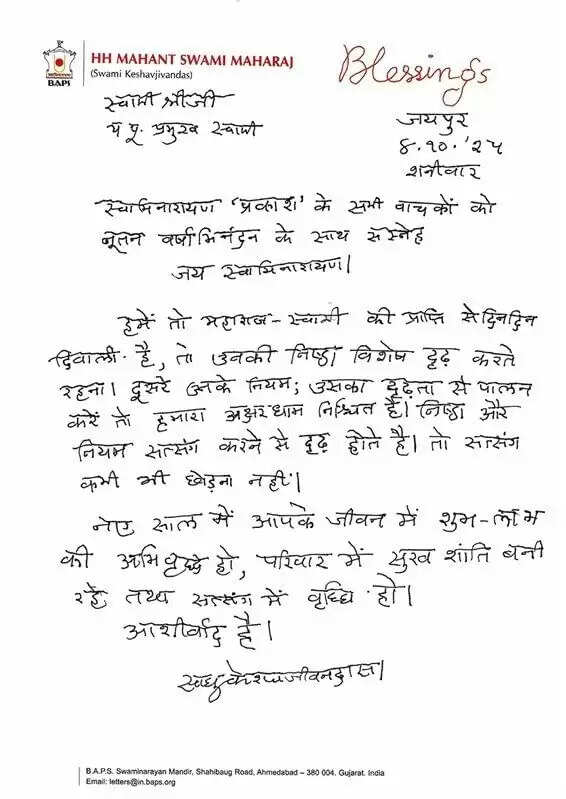 HH MAHANT SWAMI MAHARAJ
(Swami Keshavjivandas)
BAPI
Blessings
स्वामी श्रीजी
प पू. प्रमुख स्वामी
जयपुर
८.१०.'२५
शनीवार
स्वामिनारायण 'प्रकाश' के सभी वाचकों को
नूतन वर्षाभिनंदन के साथ सस्नेह
जय स्वामिनारायण।
हमें तो महाराज-स्वामी की प्राप्ति से दिनदिन
दिवाली है, तो उनकी निष्ठा विशेष दृढ़ करते
रहना। दूसरे उनके नियम; उसका दृढ़ता से पालन
करें तो हमारा अक्षरधाम निश्चित है। निष्ठा और
नियम सत्संग करने से दृढ़ होते है। तो सत्संग
कभी भी छोड़ना नहीं।
नए साल में आपके जीवन में शुभ-लाभ
की अभिवृद्धि हो, परिवार में सुख शांति बनी
रहें तथा सत्संग में वृध्धि हो।
आशीर्वाद है।
साधु केशवजीवनदास।
B.A.P.S. Swaminarayan Mandir, Shahibaug Road, Ahmedabad – 380 004. Gujarat. India
Email: letters@in.baps.org